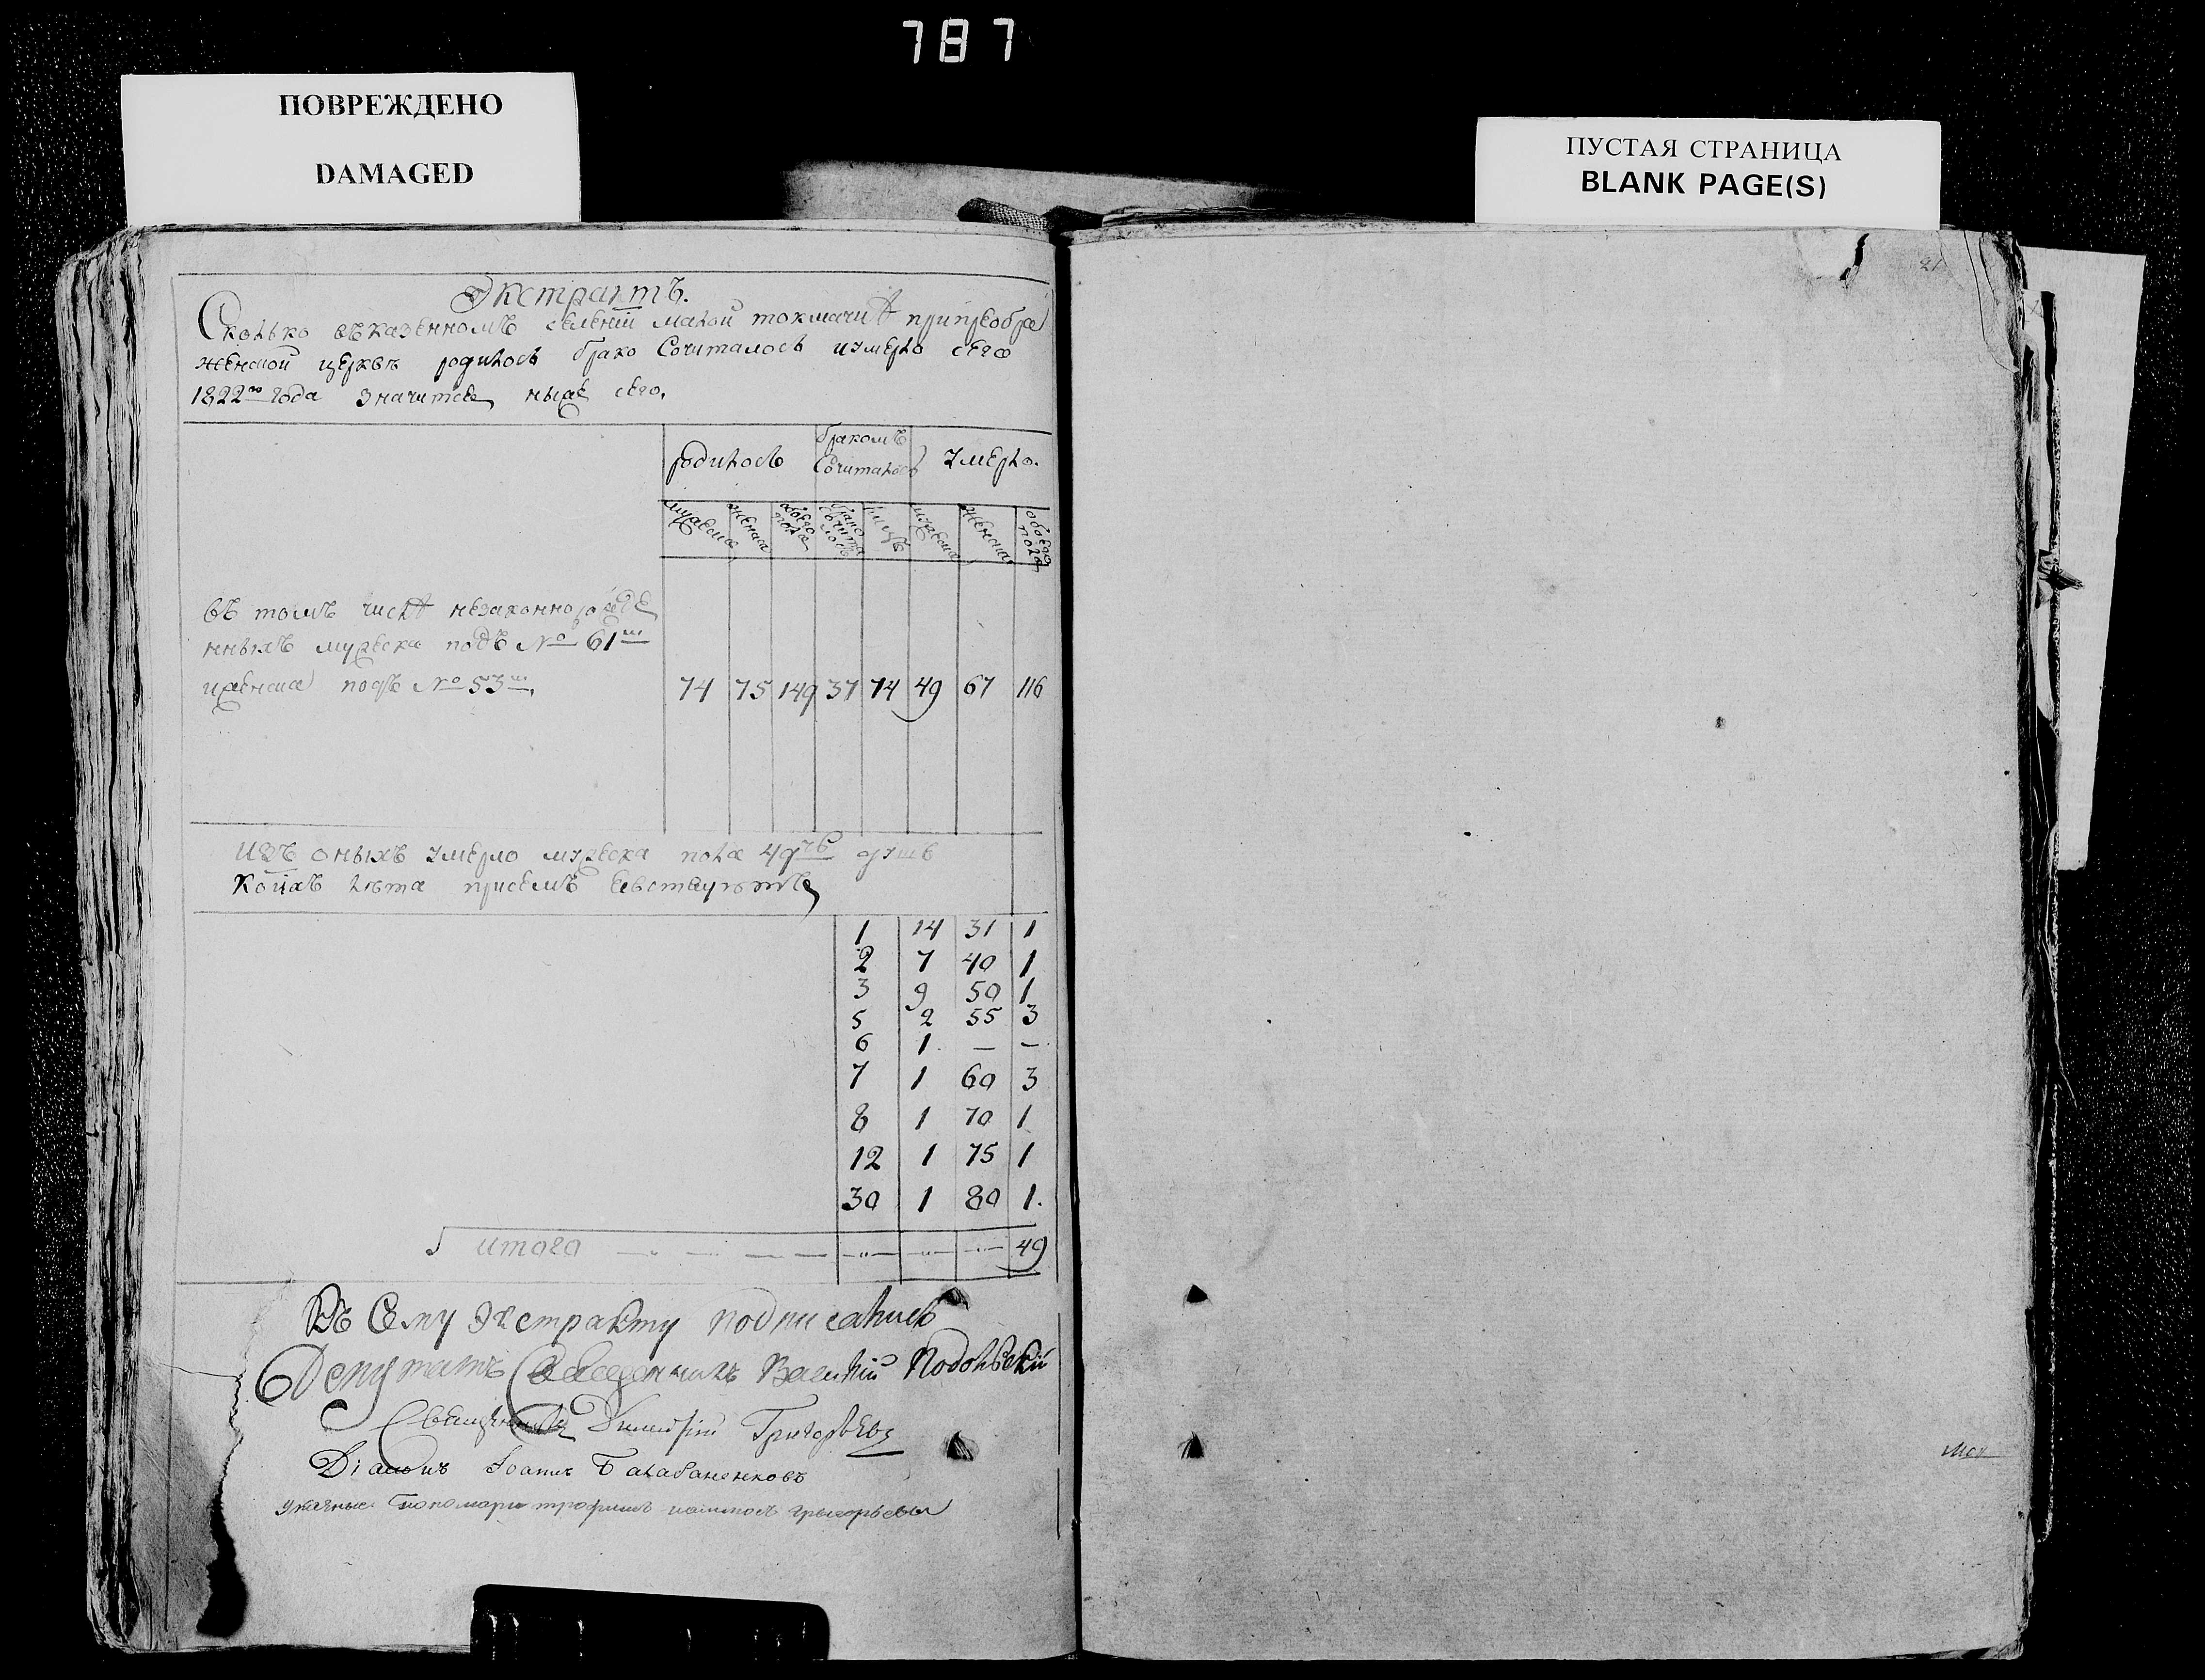 787
ПОВРЕЖДЕНО
DAMAGED
ПУСТАЯ СТРАНИЦА
BLANK PAGE(S)
21
Экстрактъ.
Сколько въ казенномъ селении малой токмачкѣ при преобра
женской церквѣ родилось брако сочиталось и умерло сего
1822го года значитсе ниже сего.
родилось
бракомъ
сочиталось
умерло.
мужеска
женска
обоего
пола
брако
сочита
лось
лицъ
мужеска
женска
обоего
пола
въ томъ числѣ незаконнорожде
нныхъ мужеска подъ № 61м
и женска подъ № 53м.
74 75 149 37 74 49 67 116
изъ оныхъ умерло мужеска пола 49ть душъ
коихъ лета присемъ
1 14 31 1
2 7 40 1
3 9 50 1
5 2 55 3
6 1 — —
7 1 60 3
8 1 70 1
12 1 75 1
30 1 80 1.
итого — — — — — — — 49
Къ Сему Экстракту подписались
Депутатъ Священникъ Василій Подольскій
Священникъ Димитрій Григорьевъ
Діаконъ Іоаннъ Балабаненковъ
указные пономари трофимъ григорьевы